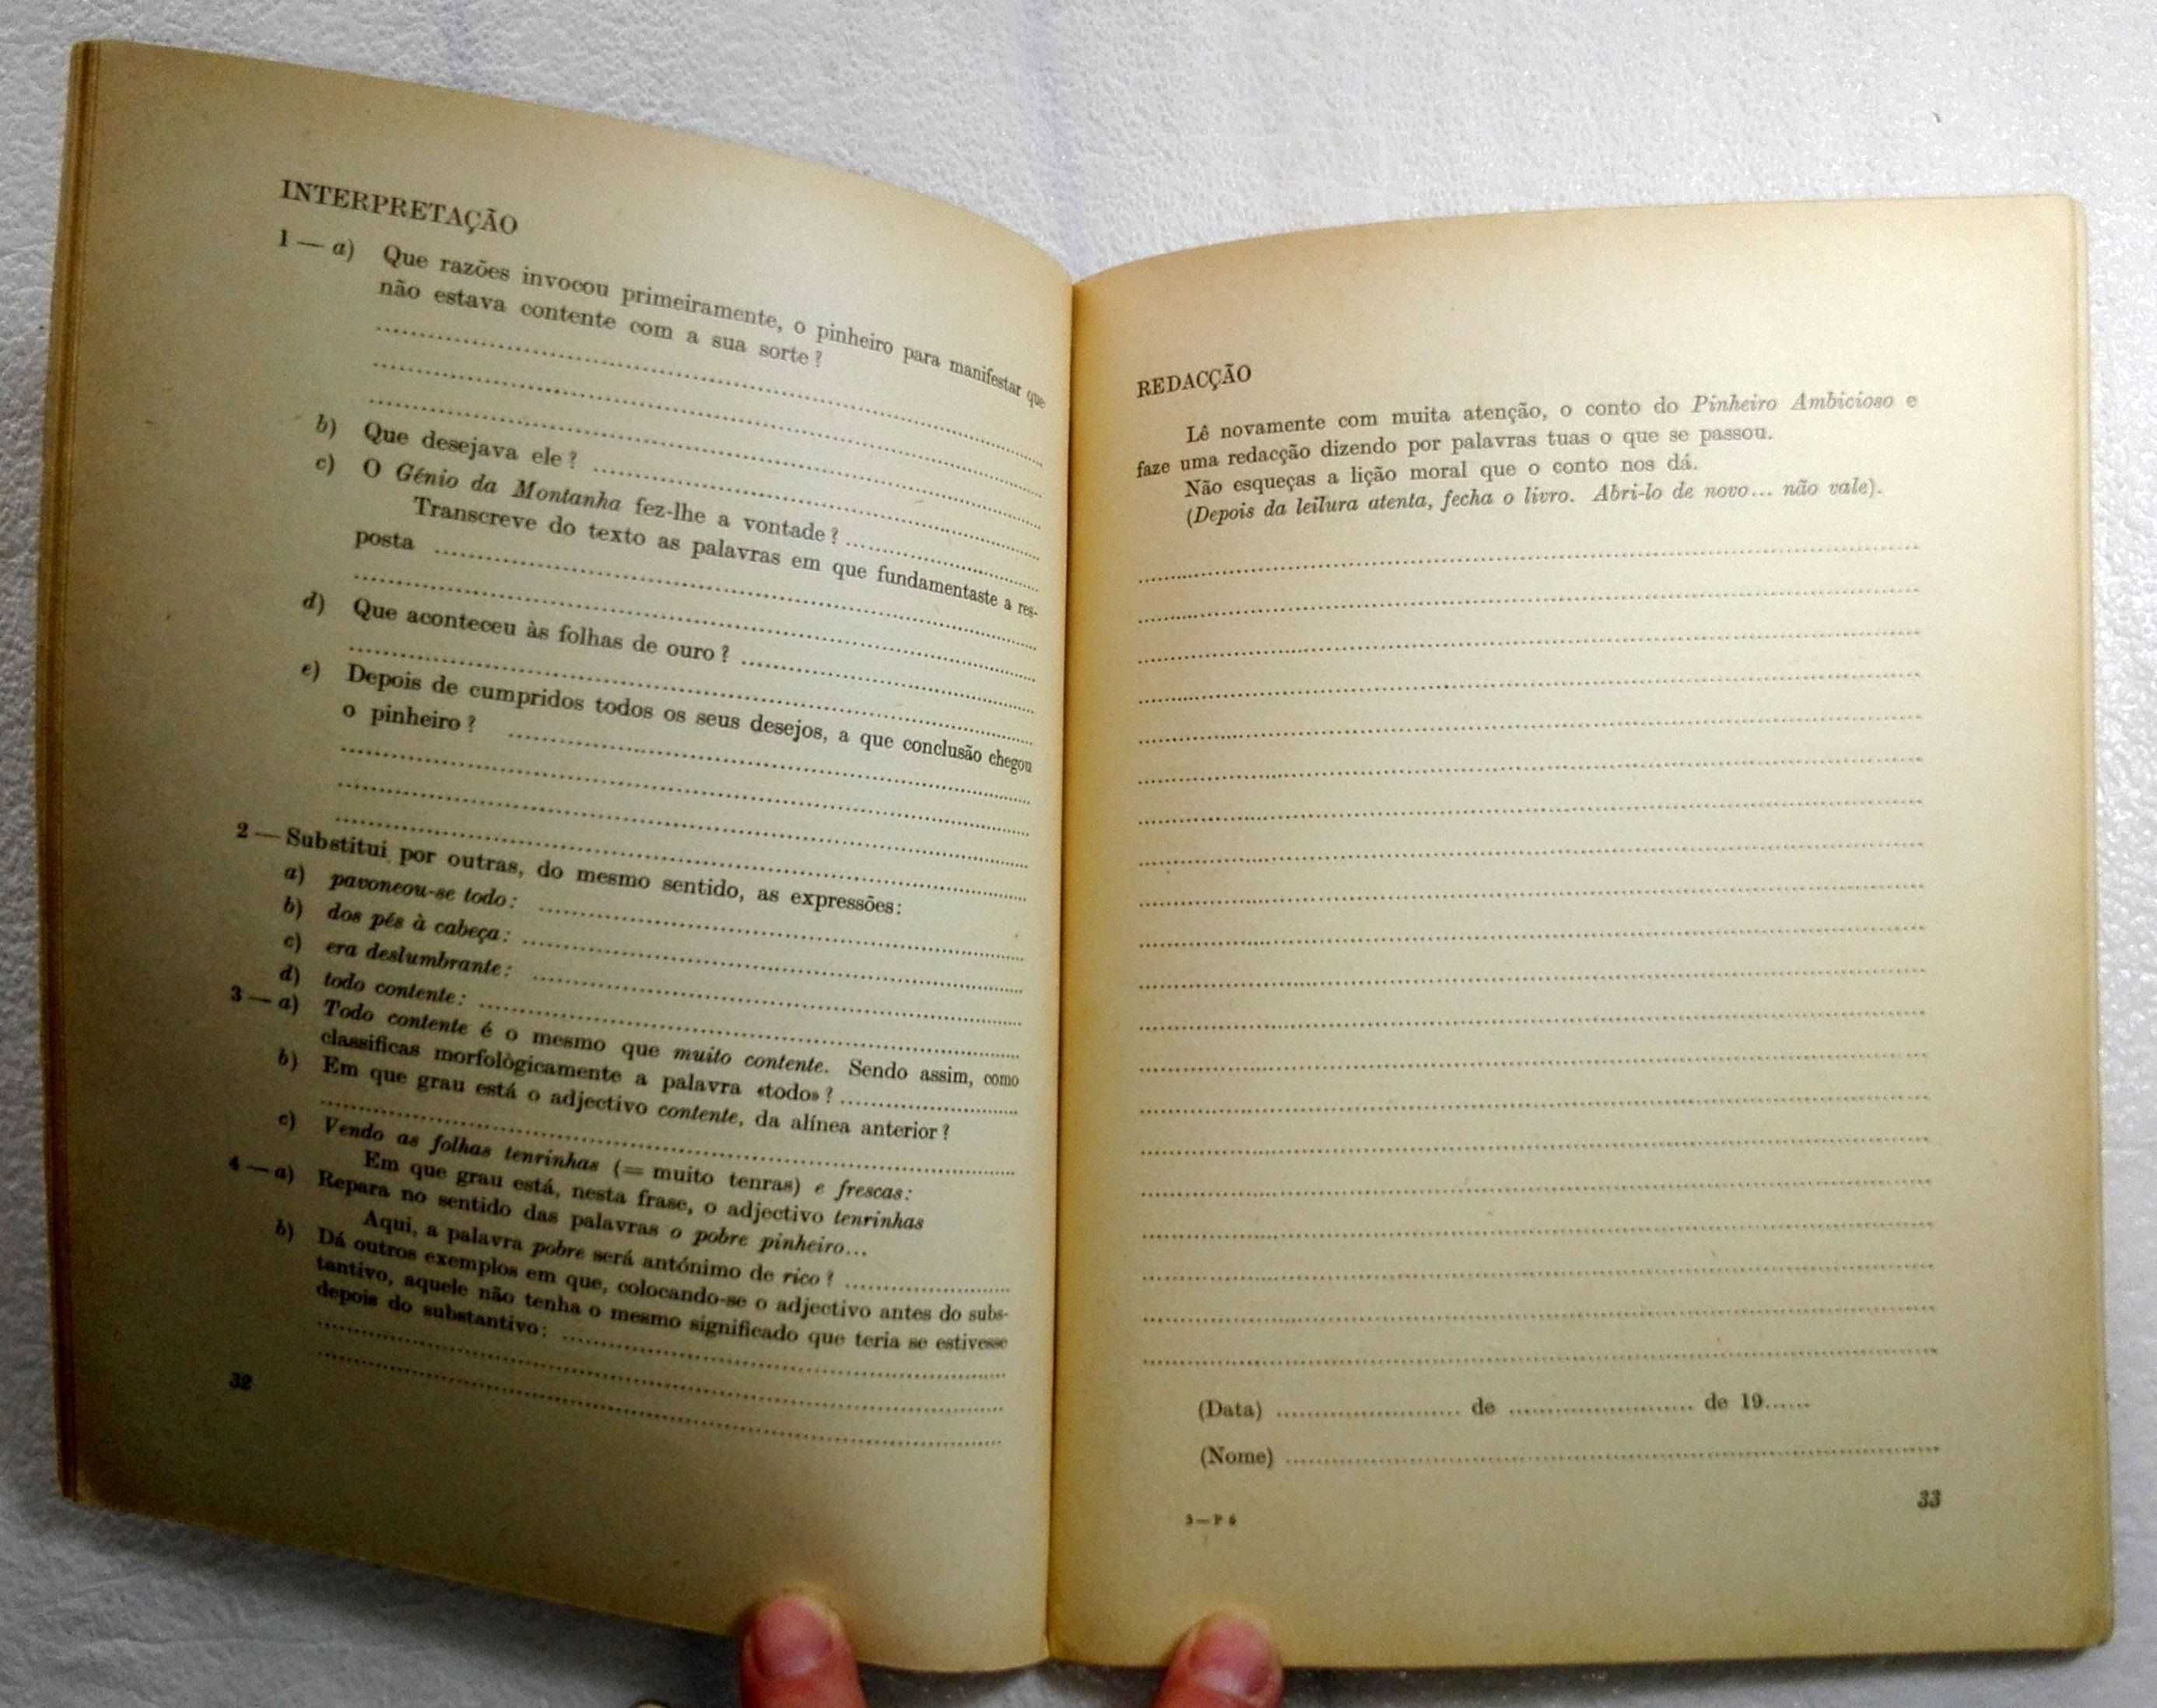 INTERPRETAÇÃO
1 — a) Que razões invocou primeiramente, o pinheiro para manifestar que
não estava contente com a sua sorte?
b) Que desejava ele?
c) O Génio da Montanha fez-lhe a vontade?
Transcreve do texto as palavras em que fundamentaste a res-
posta
d) Que aconteceu às folhas de ouro?
e) Depois de cumpridos todos os seus desejos, a que conclusão chegou
o pinheiro?
2 — Substitui por outras, do mesmo sentido, as expressões:
a) pavoneou-se todo:
b) dos pés à cabeça:
c) era deslumbrante:
d) todo contente:
3 — a) Todo contente é o mesmo que muito contente. Sendo assim, como
classificas morfològicamente a palavra «todo»?
b) Em que grau está o adjectivo contente, da alínea anterior?
c) Vendo as folhas tenrinhas (= muito tenras) e frescas:
Em que grau está, nesta frase, o adjectivo tenrinhas
4 — a) Repara no sentido das palavras o pobre pinheiro...
Aqui, a palavra pobre será antónimo de rico?
b) Dá outros exemplos em que, colocando-se o adjectivo antes do subs-
tantivo, aquele não tenha o mesmo significado que teria se estivesse
depois do substantivo:
32
REDACÇÃO
Lê novamente com muita atenção, o conto do Pinheiro Ambicioso e
faze uma redacção dizendo por palavras tuas o que se passou.
Não esqueças a lição moral que o conto nos dá.
(Depois da leitura atenta, fecha o livro. Abri-lo de novo... não vale).
(Data) ........................ de ........................ de 19......
(Nome)
33
3 — P 6